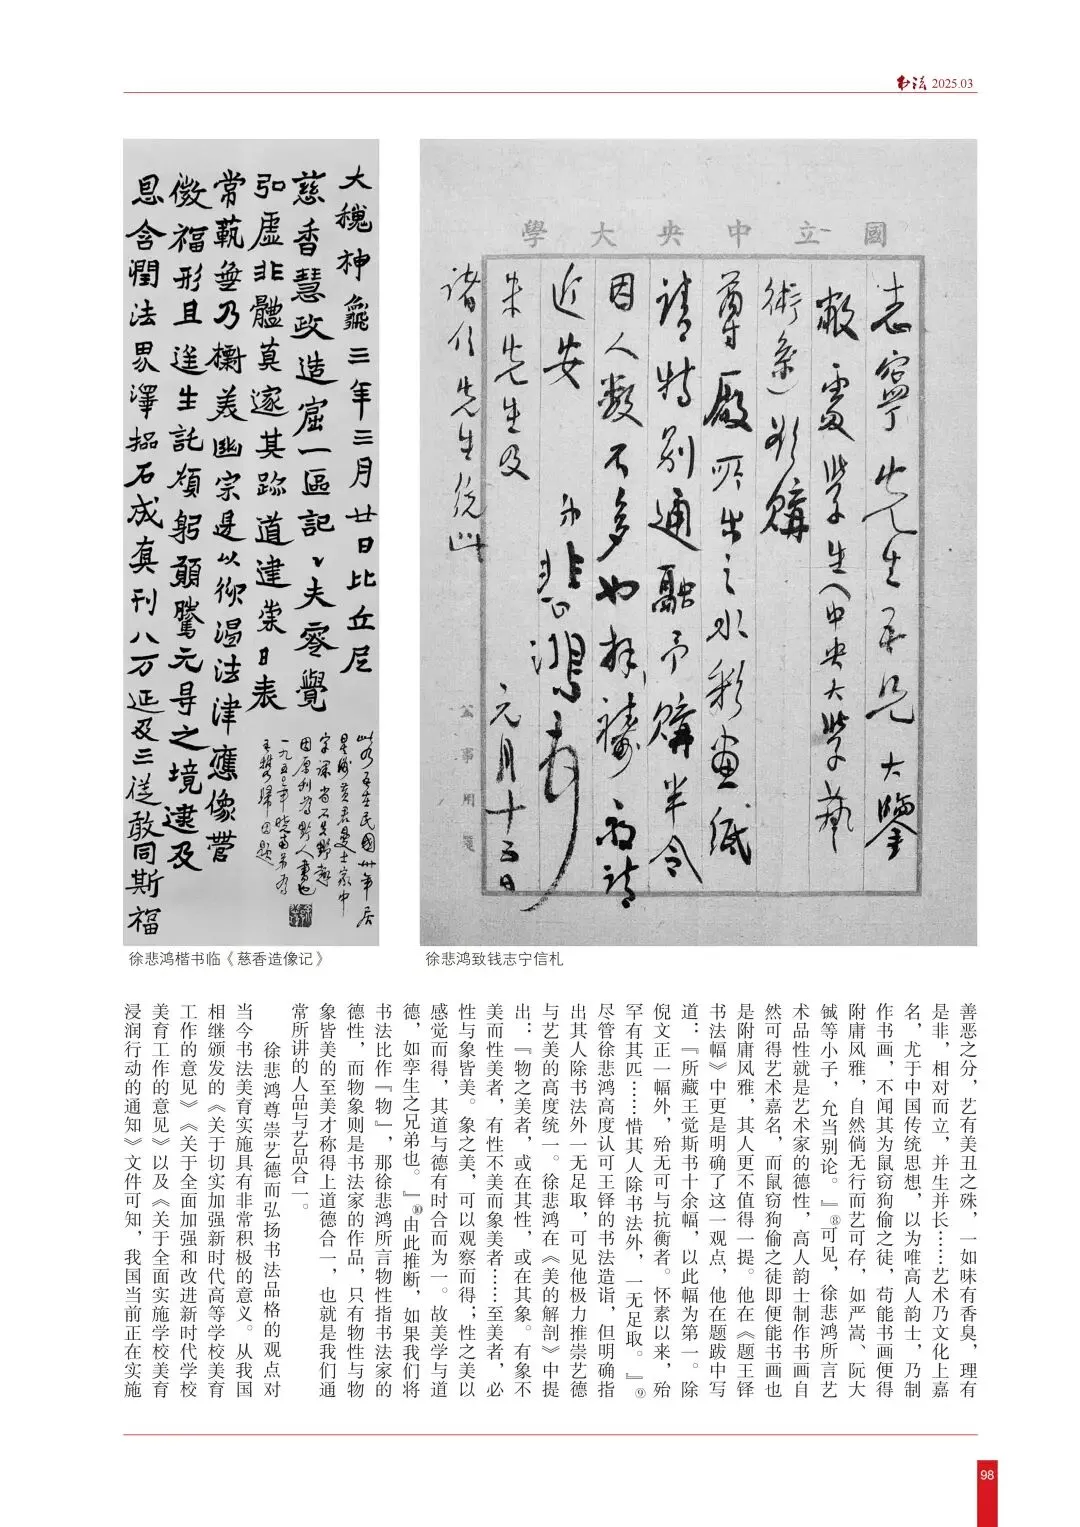 书法 2025.03
大魏神龜三年三月廿日比丘尼
慈香慧政造窟一區記〻夫零覺
弘虛非體真邃其跡道建崇日表
常軌無乃標美幽宗是以仰渴法津應像營
微福形且遙生託煩躬願騰元㝵之境逮及
恩含潤法界澤招石成真刊八万延及三從敢同斯福
此乃吾在民國卅年居
星洲黃君曼士家中
一九五〇年
國立中央大學
志寧先生吾兄大鑒
敝處學生(中央大學藝
術系)欲購
尊廠所出之水彩畫紙
請特別通融予購半令
因人數不多也拜禱敬請
近安
弟悲鴻頓
元月十五日
朱先生及
諸位先生統此
公事用箋
徐悲鸿楷书临《慈香造像记》
徐悲鸿致钱志宁信札
善恶之分，艺有美丑之殊，一如味有香臭，理有
是非，相对而立，并生并长……艺术乃文化上嘉
名，尤于中国传统思想，以为唯高人韵士，乃制
作书画，不闻其为鼠窃狗偷之徒，苟能书画便得
附庸风雅，自然倘无行而艺可存，如严嵩、阮大
铖等小子，允当别论。』⑧可见，徐悲鸿所言艺
术品性就是艺术家的德性，高人韵士制作书画自
然可得艺术嘉名，而鼠窃狗偷之徒即便能书画也
是附庸风雅，其人更不值得一提。他在《题王铎
书法幅》中更是明确了这一观点，他在题跋中写
道：『所藏王觉斯书十余幅，以此幅为第一。除
倪文正一幅外，殆无可与抗衡者。怀素以来，殆
罕有其匹……惜其人除书法外，一无足取。』⑨
尽管徐悲鸿高度认可王铎的书法造诣，但明确指
出其人除书法外一无足取，可见他极力推崇艺德
与艺美的高度统一。徐悲鸿在《美的解剖》中提
出：『物之美者，或在其性，或在其象。有象不
美而性美者，有性不美而象美者……至美者，必
性与象皆美。象之美，可以观察而得；性之美以
感觉而得，其道与德有时合而为一。故美学与道
德，如孪生之兄弟也。』⑩由此推断，如果我们将
书法比作『物』，那徐悲鸿所言物性指书法家的
德性，而物象则是书法家的作品，只有物性与物
象皆美的至美才称得上道德合一，也就是我们通
常所讲的人品与艺品合一。
徐悲鸿尊崇艺德而弘扬书法品格的观点对
当今书法美育实施具有非常积极的意义。从我国
相继颁发的《关于切实加强新时代高等学校美育
工作的意见》《关于全面加强和改进新时代学校
美育工作的意见》以及《关于全面实施学校美育
浸润行动的通知》文件可知，我国当前正在实施
98